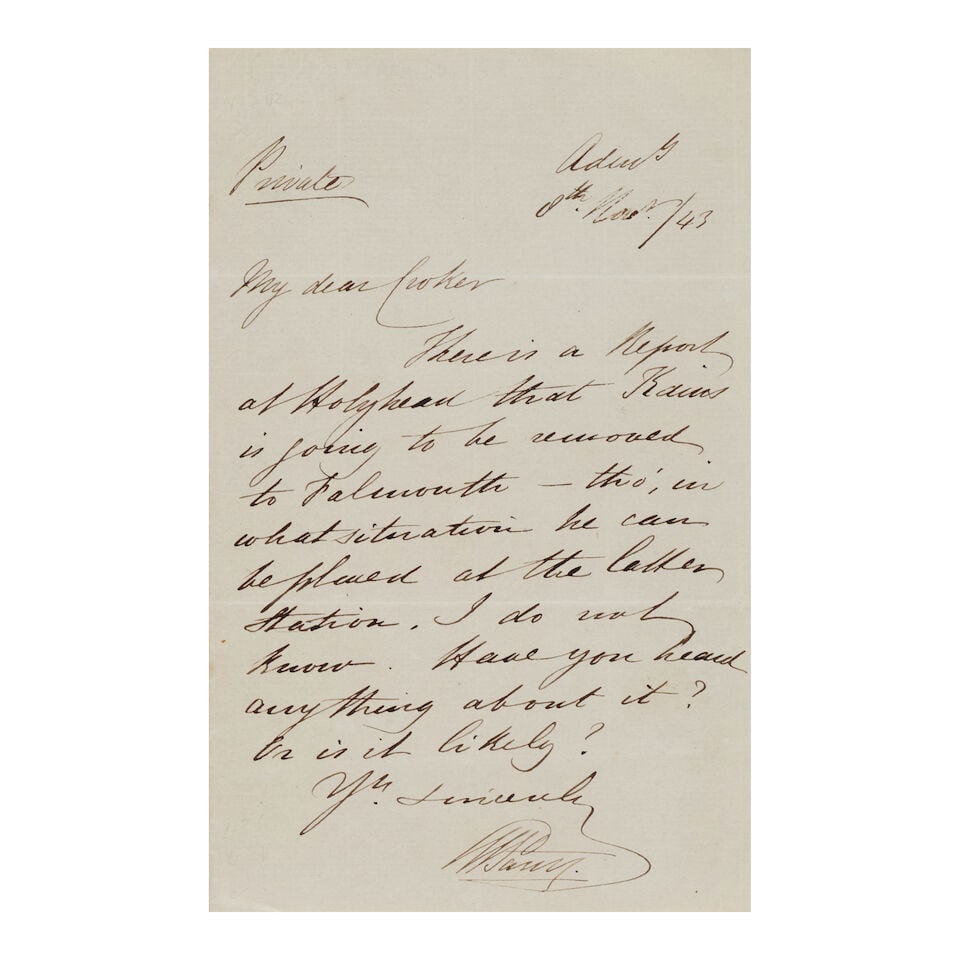 Private
Admty
8th. Novr. /43
My dear Croker
There is a Report
at Holyhead that Kains
is going to be removed
to Falmouth – tho', in
what situation he can
be placed at the latter
Station. I do not
know. Have you heard
anything about it?
Or is it likely?
Yrs. sincerely
WEParry.